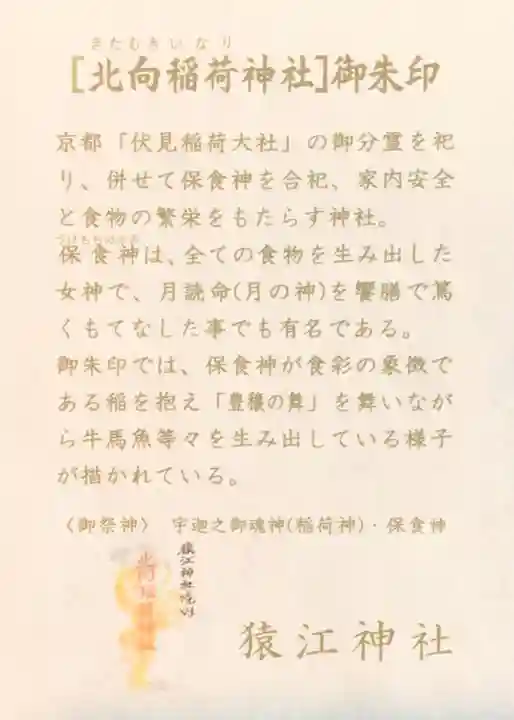 きたむきいなり
[北向稲荷神社]御朱印
京都「伏見稲荷大社」の御分霊を祀
り、併せて保食神を合祀、家内安全
と食物の繁栄をもたらす神社。
うけもちのかみ
保食神は、全ての食物を生み出した
女神で、月読命(月の神)を饗膳で篤
くもてなした事でも有名である。
御朱印では、保食神が食彩の象徴で
ある稲を抱え「豊穣の舞」を舞いなが
ら牛馬魚等々を生み出している様子
が描かれている。
〈御祭神〉 宇迦之御魂神(稲荷神)・保食神
猿江神社